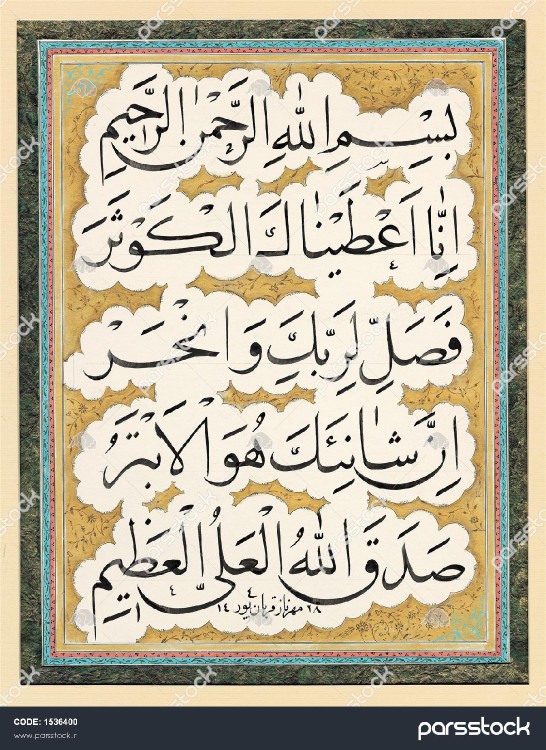 بِسْمِ اللهِ الرَّحْمٰنِ الرَّحِيمِ
اِنَّا اَعْطَيْنَاكَ الْكَوْثَرَ
فَصَلِّ لِرَبِّكَ وَانْحَرْ
اِنَّ شَانِئَكَ هُوَ الْاَبْتَرُ
صَدَقَ اللهُ الْعَلِيُّ الْعَظِيمُ
CODE: 1536400
www.parsstock.ir
parsstock